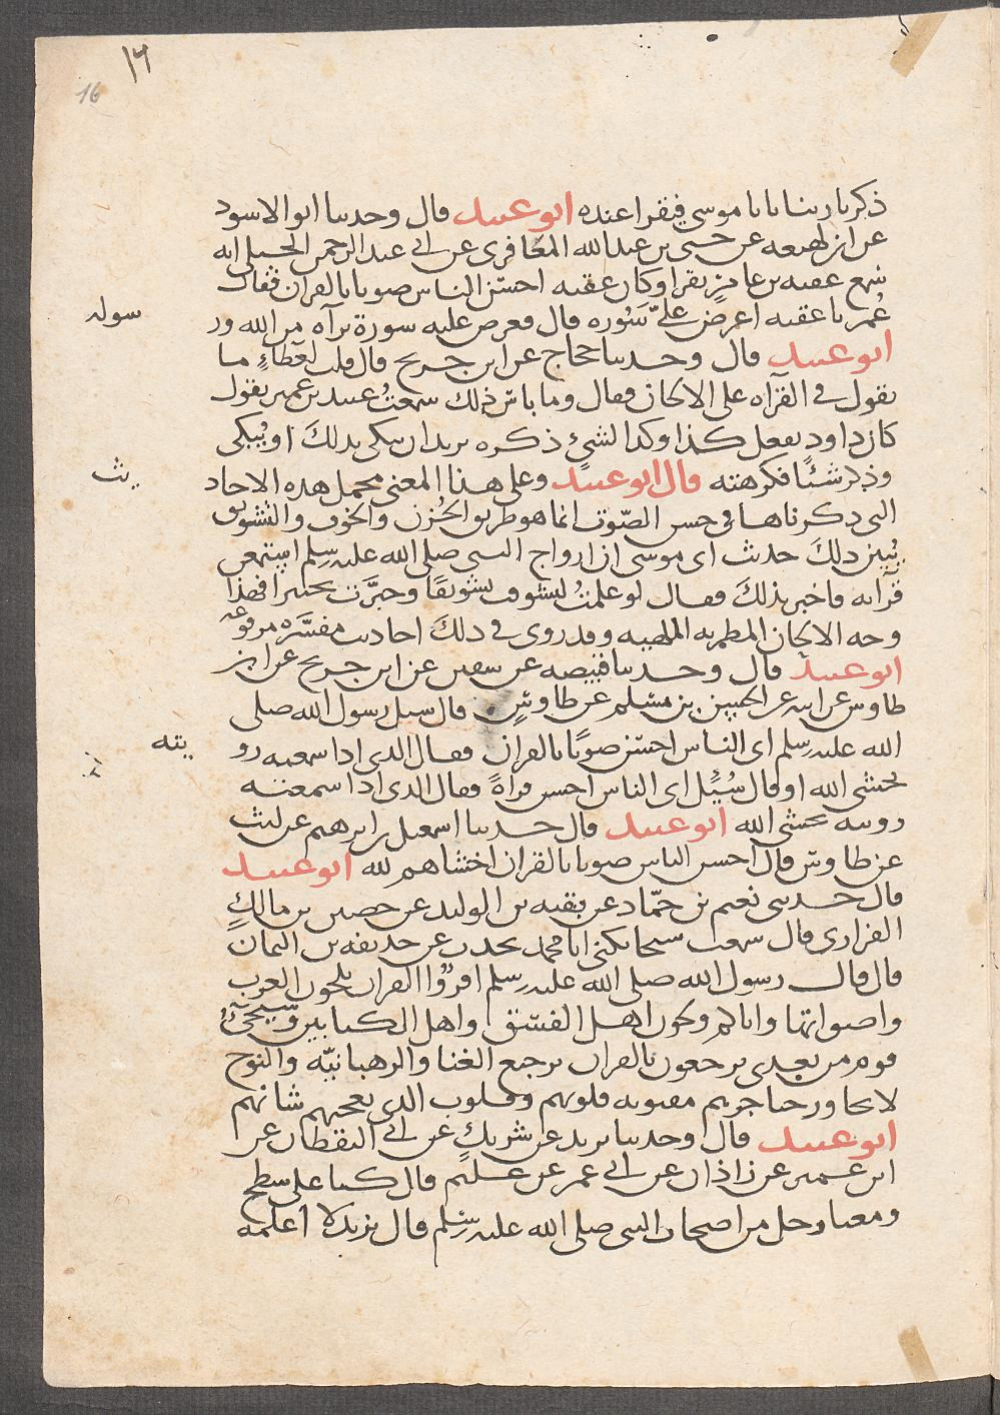 ١٦
16
ذكرنا ربنا يابا موسى فيقرا عنده ابو عبيد قال وحدثنا ابو الاسود
عن ابن لهيعه عن حيى بن عبد الله المعافرى عن ابى عبد الرحمن الحبلى انه
سمع عقبه بن عامر يقرا وكان عقبه احسن الناس صوتا بالقران فقال
عُمر يا عقبه اعرض علىّ سُوره قال فعرض عليه سورة براه من الله ور
سوله
ابو عبيد قال وحدثنا حجاج عن ابن جريج قال قلت لعطاءٍ ما
يقول فى القرآه على الالحان فقال وما باس ذلك سمعتُ عبيد بن عمير يقول
كان داود يفعل كذا وكذا لشىءٍ ذكره يريد ان يبكى بذلكَ او يُبكى
وذكر شئًا فكرهته قال ابو عبيد وعلى هذا المعنى محمل هذه الاحاد
يث
التى ذكرناها فى حسن الصّوت انما هو طريق الحُزن والخوف والتشويق
يُبين ذلكَ حديث ابى موسى ان ازواج النبى صلى الله عليه وسلم استمعن
قرآته فاخبر بذلكَ فقال لو علمتُ لشوقت تشويقًا وحبَّرت تحبيرا فهذا
وجه الالحان المطربه الملهيه وقد روى فى ذلكَ احاديث مفسَّره مرفوعه
ابو عبيد قال وحدثنا قبيصه عن سفين عن ابن جريج عن ابن
طاوس عن ابيه عن الحسن بن مسلم عن طاوسٍ قال سيل رسول الله صلى
الله عليه وسلم اى الناس احسن صوتًا بالقران فقال الذى اذا سمعته رو
يته
يخشى الله او قال سُيِّل اى الناس احسن قراةً فقال الذى اذا سمعته
رويته يخشى الله ابو عبيد قال حدثنا اسمعيل بن ابرهيم عن ليث
عن طاوس قال احسن الناس صوتا بالقران اخشاهم لله ابو عبيد
قال حدثنى نعيم بن حمّاد عن بقيه بن الوليد عن حصين بن مالكٍ
الفزارى قال سمعت شيخا يكنى ابا محمد يحدث عن حذيفه بن اليمان
قال قال رسول الله صلى الله عليه وسلم اقرؤا القران بلحون العرب
واصواتها واياكم ولحون اهل الفسق واهل الكتابين وسيجىءُ
قوم من بعدى يرجعون بالقران ترجيع الغنا والرهبانيّه والنوح
لا يجاوز حناجرهم مفتونه قلوبهم وقلوب الذى يعجبهم شانهم
ابو عبيد قال وحدثنا يزيد عن شريكٍ عن ابى اليقظان عن
ابن عمير عن زاذان عن ابى عمر عن عليم قال كنا على سطح
ومعنا رجل من اصحاب النبى صلى الله عليه وسلم قال يزيد لا اعلمه